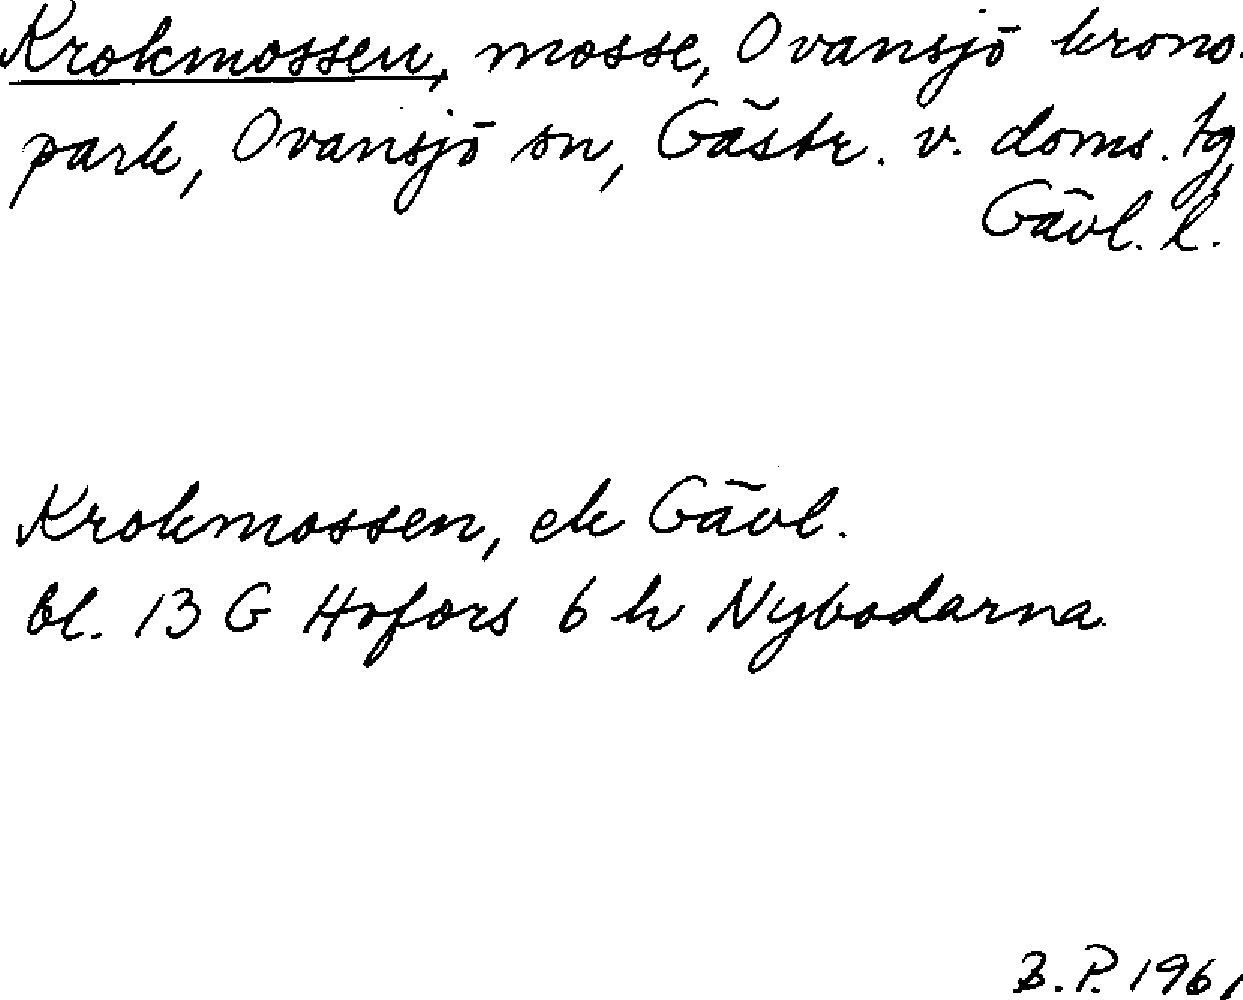 Krokmossen, mosse, Ovansjö krono-
park, Ovansjö sn, Gästr. v. doms. tg,
Gävl. l.
Krokmossen, ek Gävl.
bl. 13 G Hofors 6 h Nybodarna
B.P. 1961